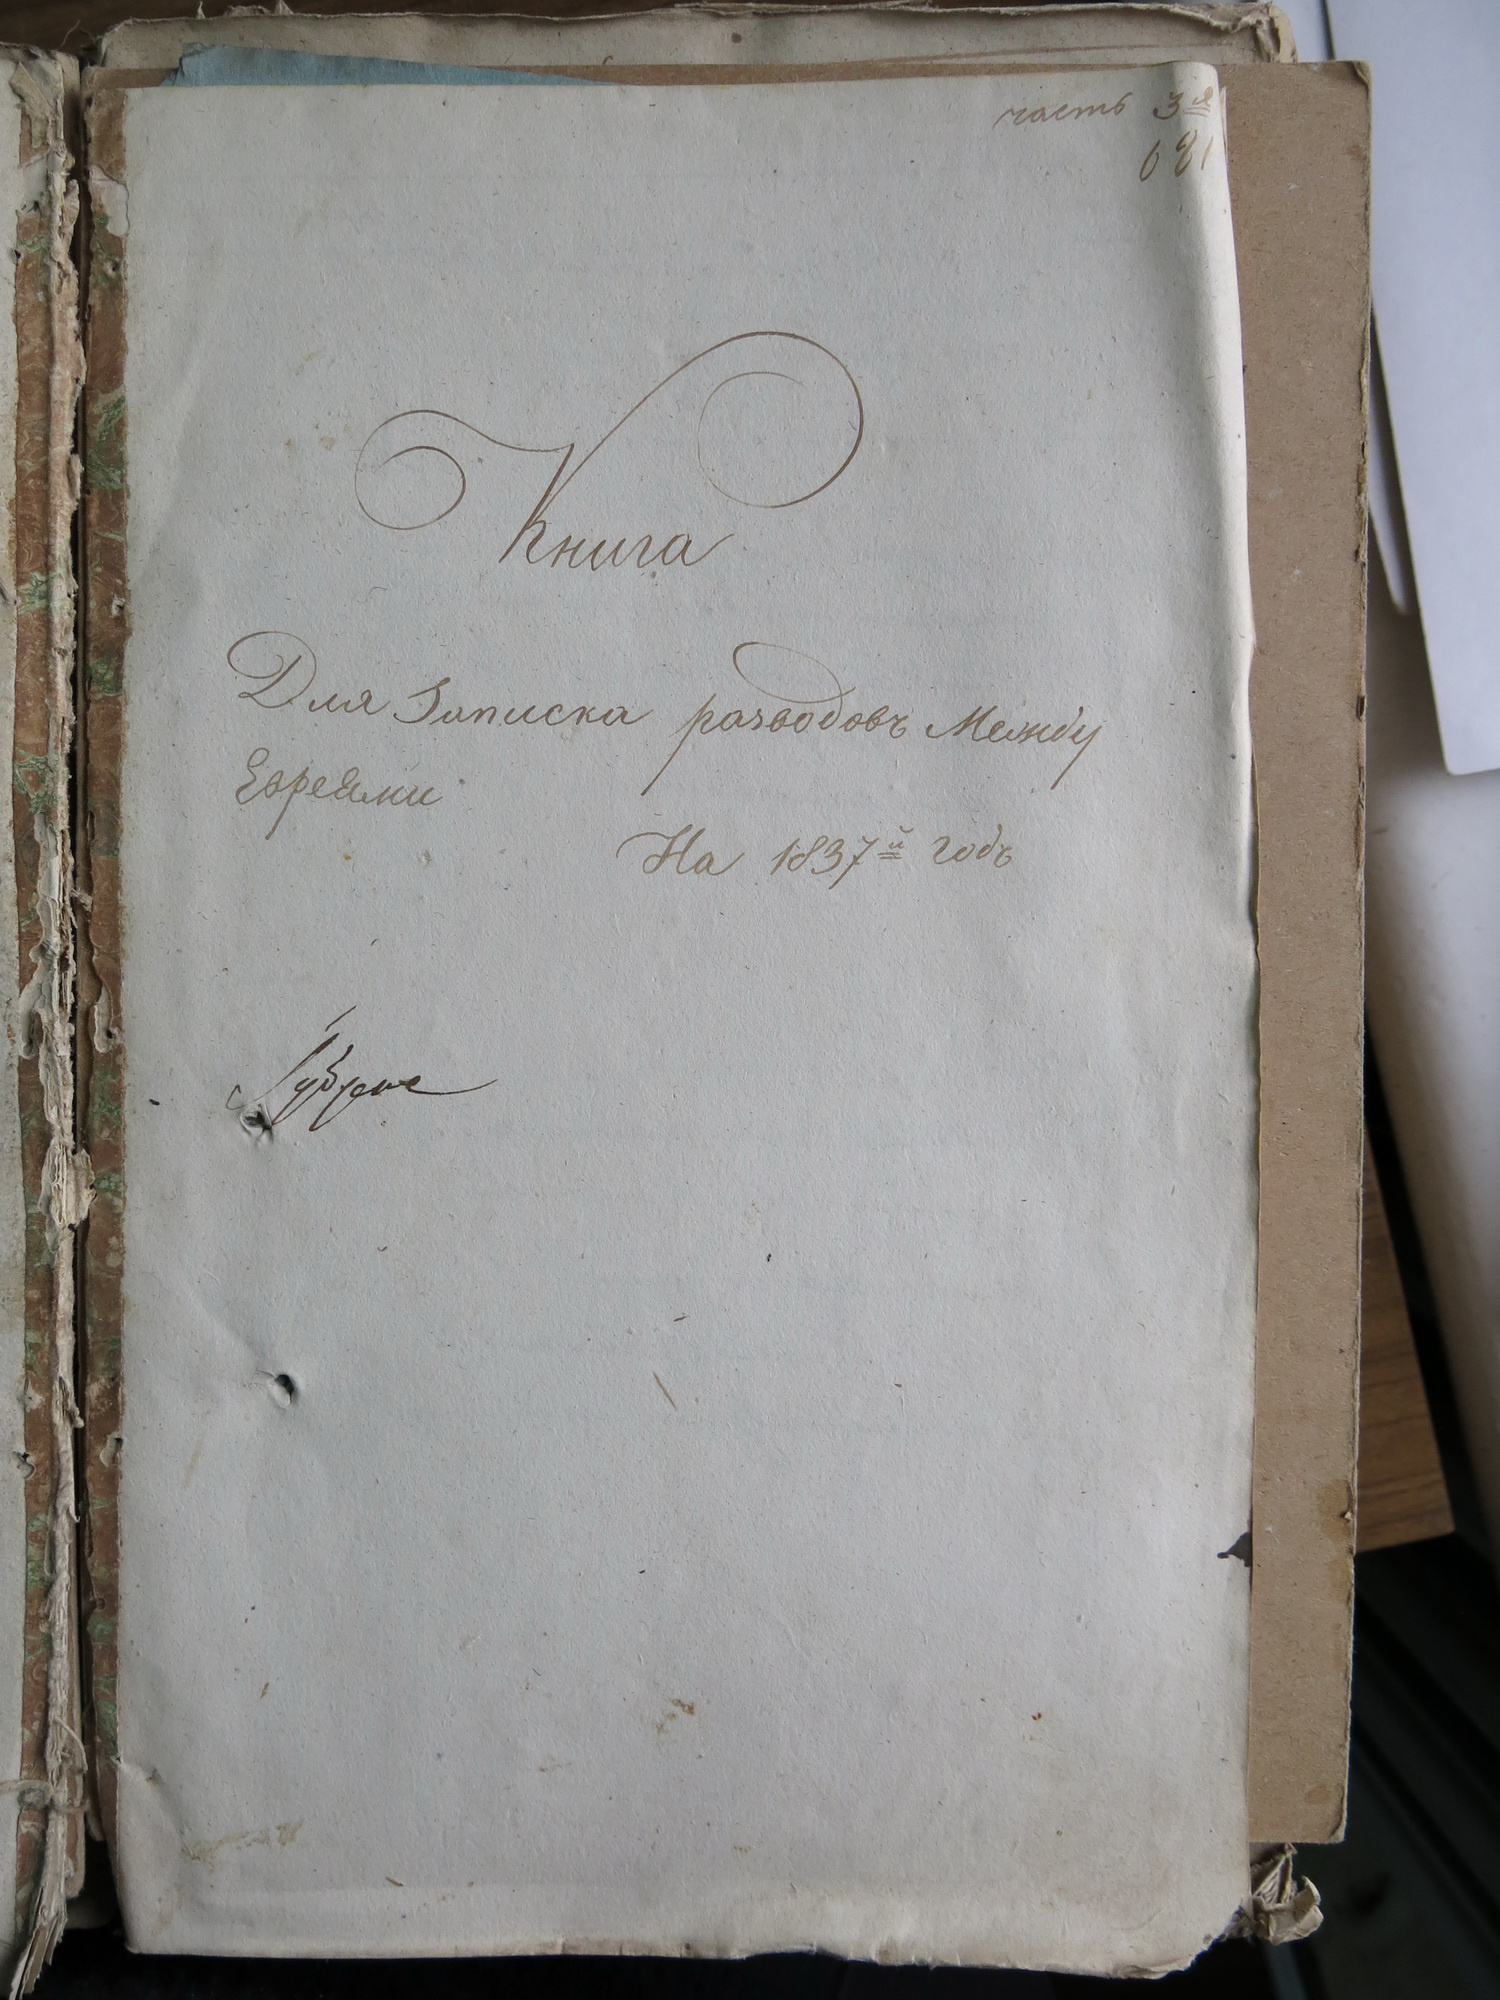 часть 3я
681
Книга
Для Записка разводовъ Между
Евреями
На 1837й годъ